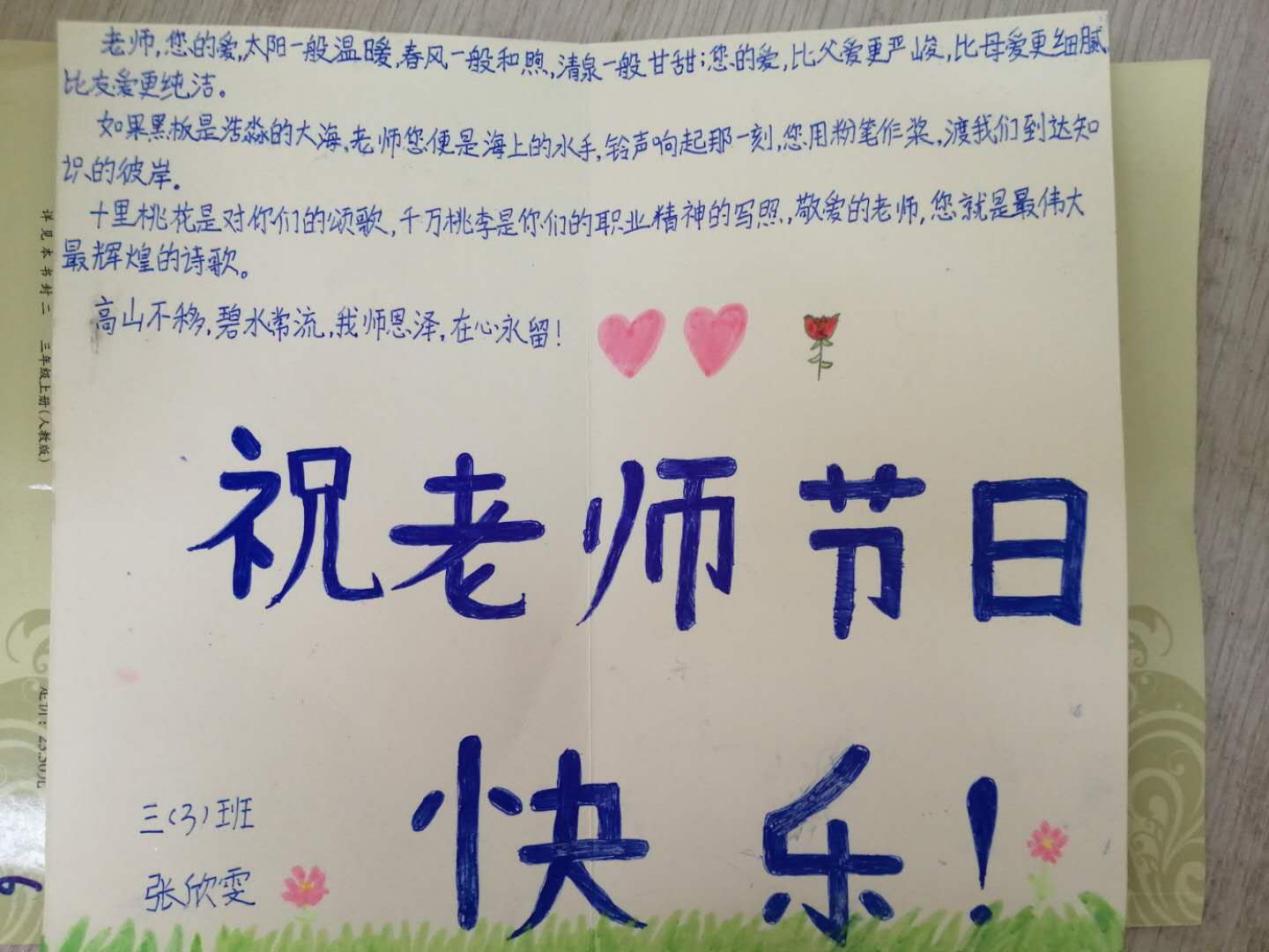 老师,您的爱,太阳一般温暖,春风一般和煦,清泉一般甘甜;您的爱,比父爱更严峻,比母爱更细腻,
比友爱更纯洁。
如果黑板是浩淼的大海,老师您便是海上的水手,铃声响起那一刻,您用粉笔作桨,渡我们到达知
识的彼岸。
十里桃花是对你们的颂歌,千万桃李是你们的职业精神的写照,敬爱的老师,您就是最伟大
最辉煌的诗歌。
高山不移,碧水常流,我师恩泽,在心永留!
祝老师节日
快乐!
三(3)班
张欣雯
详见本书封二 三年级上册(人教版)